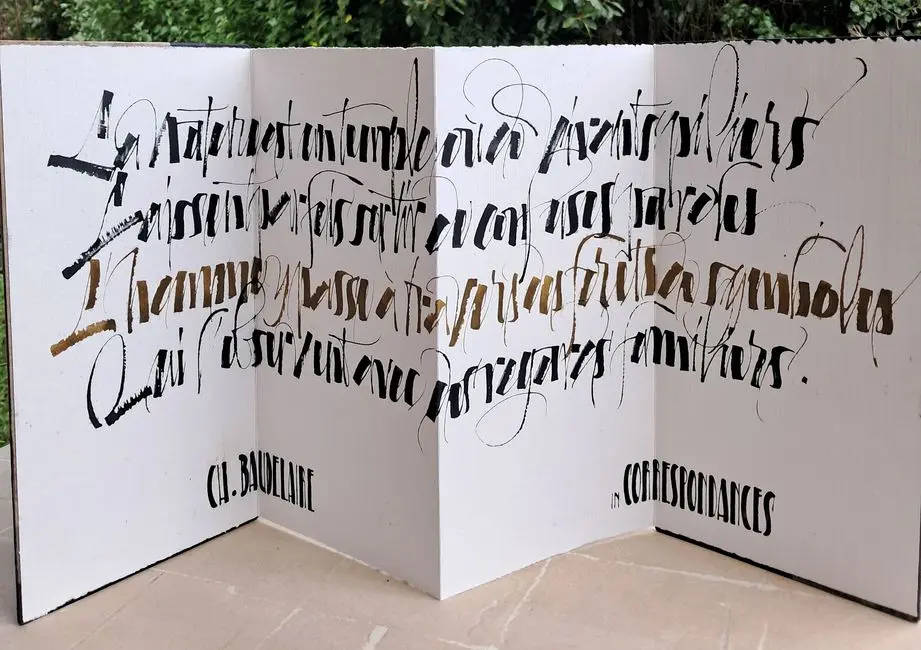 La nature est un temple où de vivants piliers
Laissent parfois sortir de confuses paroles
L'homme y passe à travers des forêts de symboles
Qui l'observent avec des regards familiers.
CH. BAUDELAIRE
IN CORRESPONDANCES